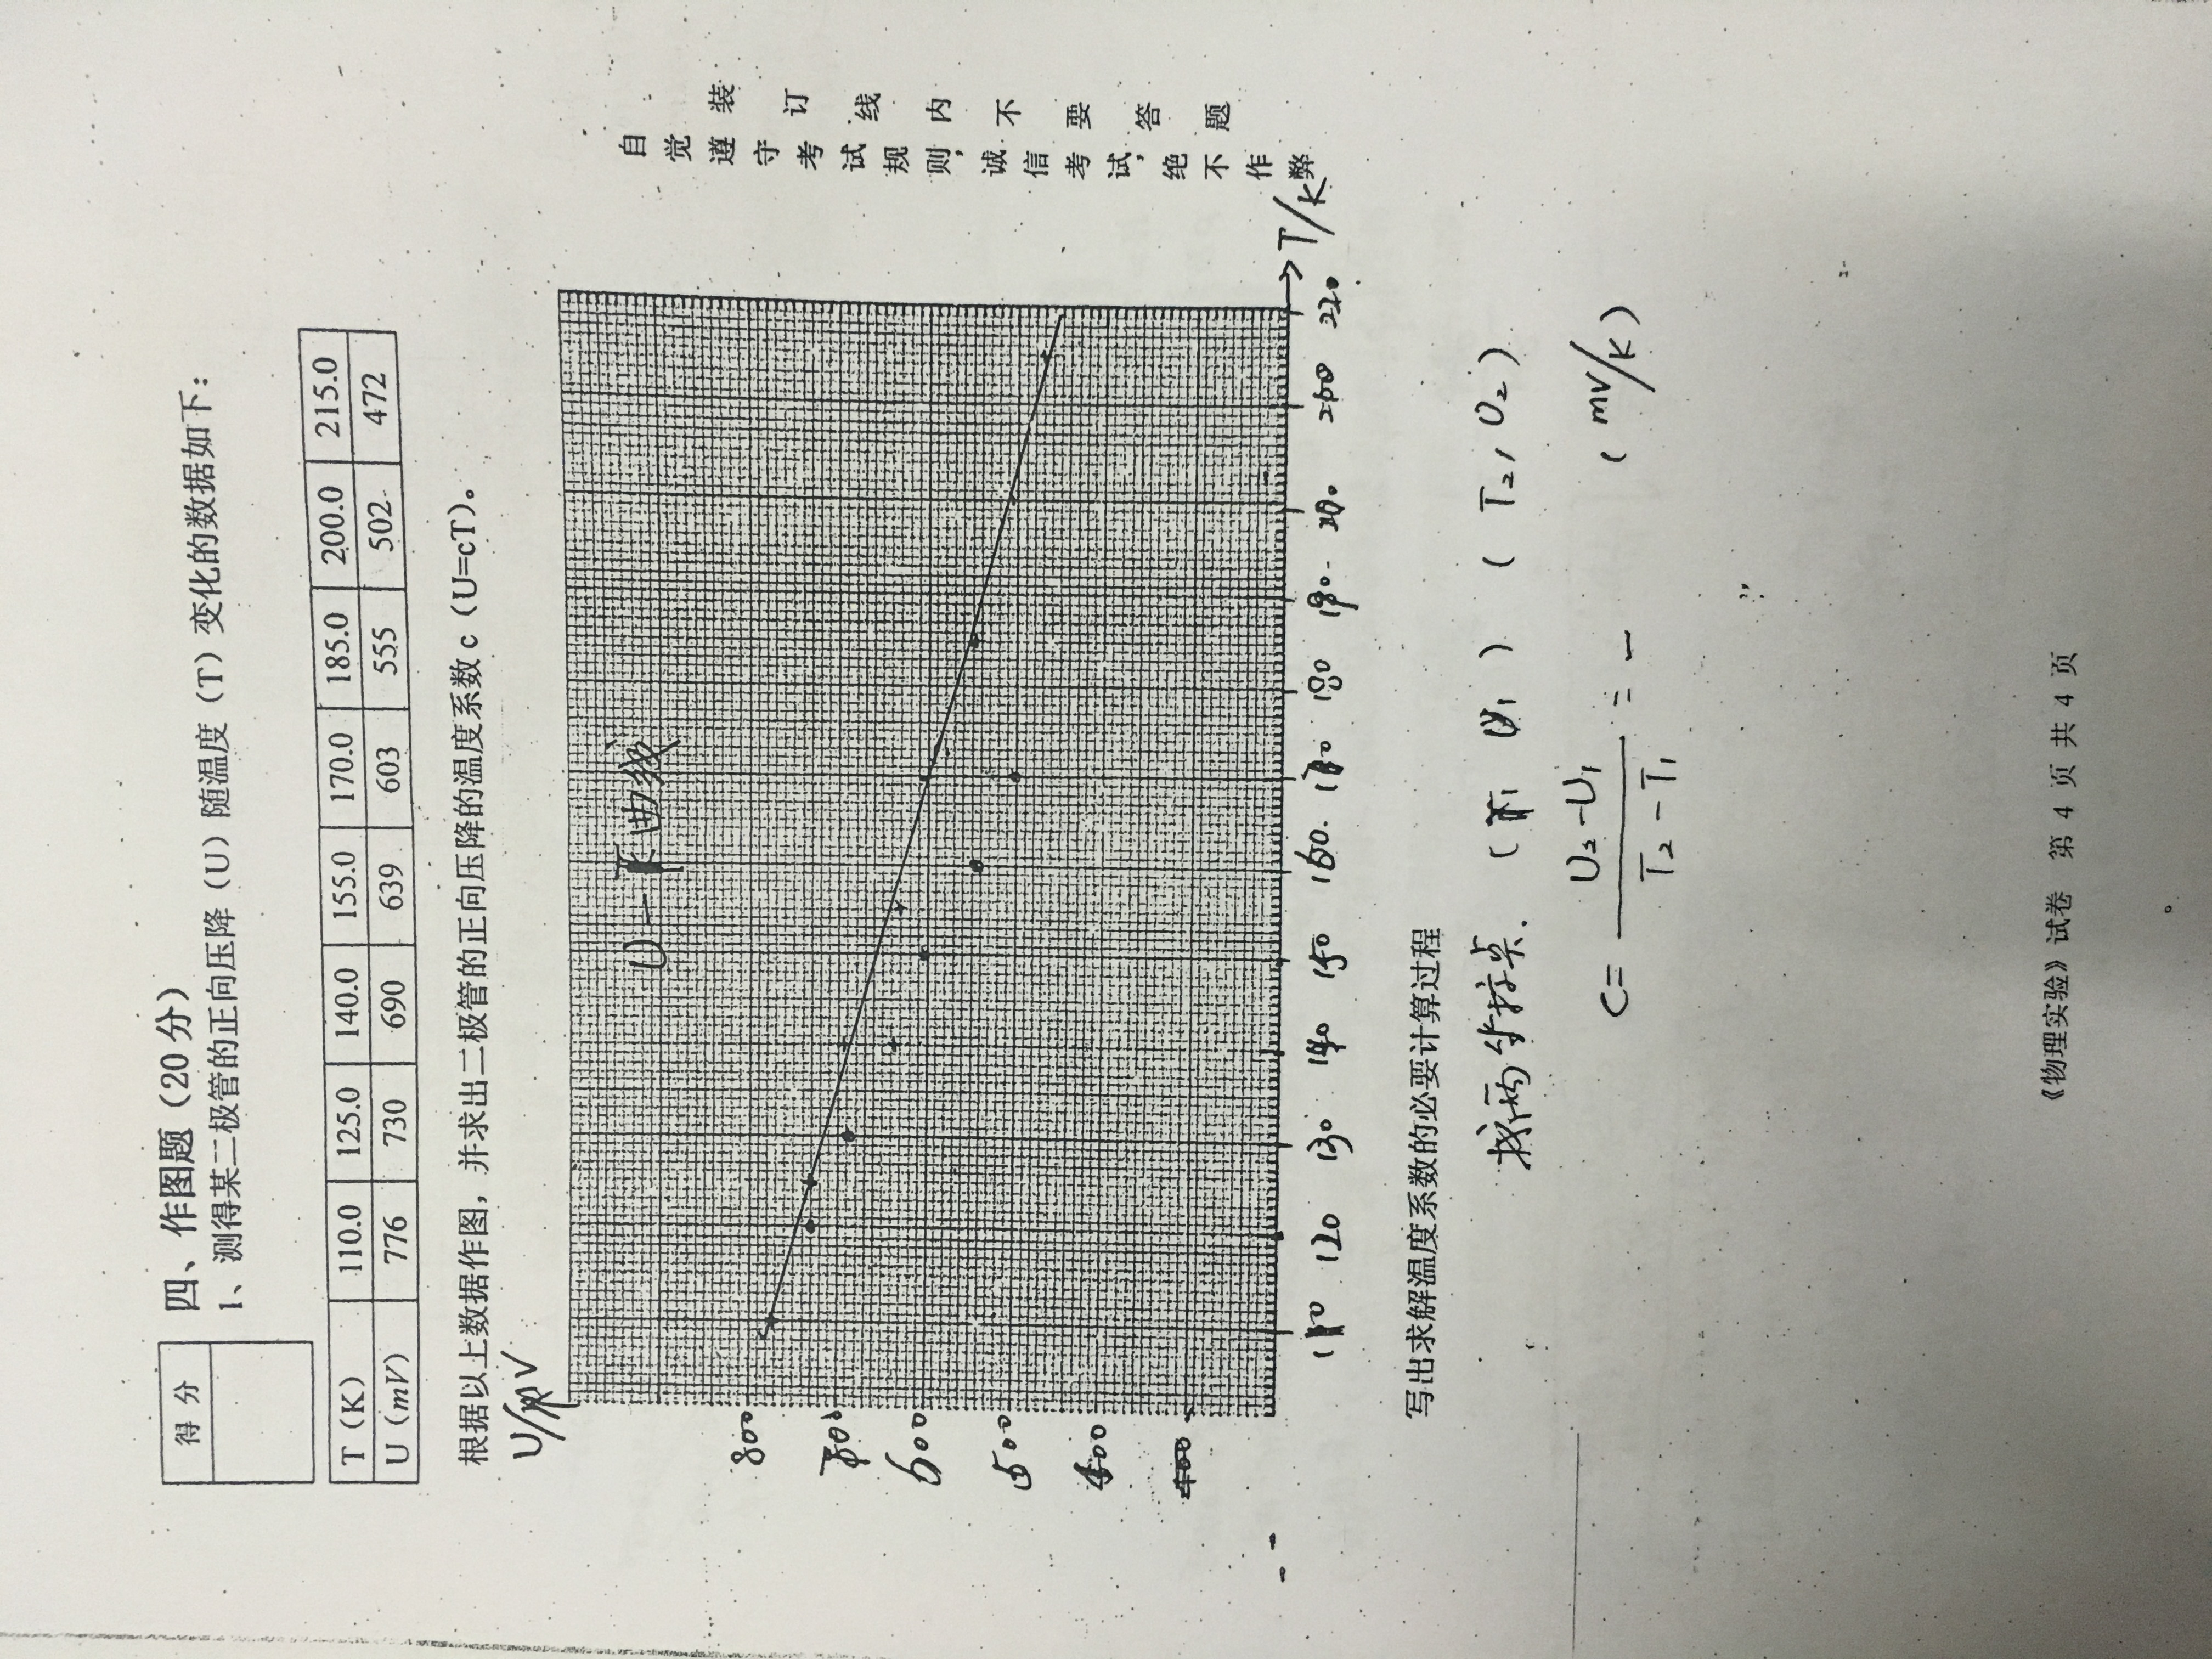 得 分
四、作图题（20分）
1、测得某二极管的正向压降（U）随温度（T）变化的数据如下：
T（K） 110.0 125.0 140.0 155.0 170.0 185.0 200.0 215.0
U（mV） 776 730 690 639 603 555 502 472
根据以上数据作图，并求出二极管的正向压降的温度系数 c（U=cT）。
U/mV
U-T 曲线
800
700
600
500
400
110 120 130 140 150 160 170 180 190 220
→T/K
写出求解温度系数的必要计算过程
找两个特殊点. (T₁ U₁) (T₂, U₂)
C= U₂-U₁ / T₂-T₁ = - (mV/K)
《物理实验》试卷 第 4 页 共 4 页
装 订 线 内 不 要 答 题
自觉遵守考试规则，诚信考试，绝不作弊